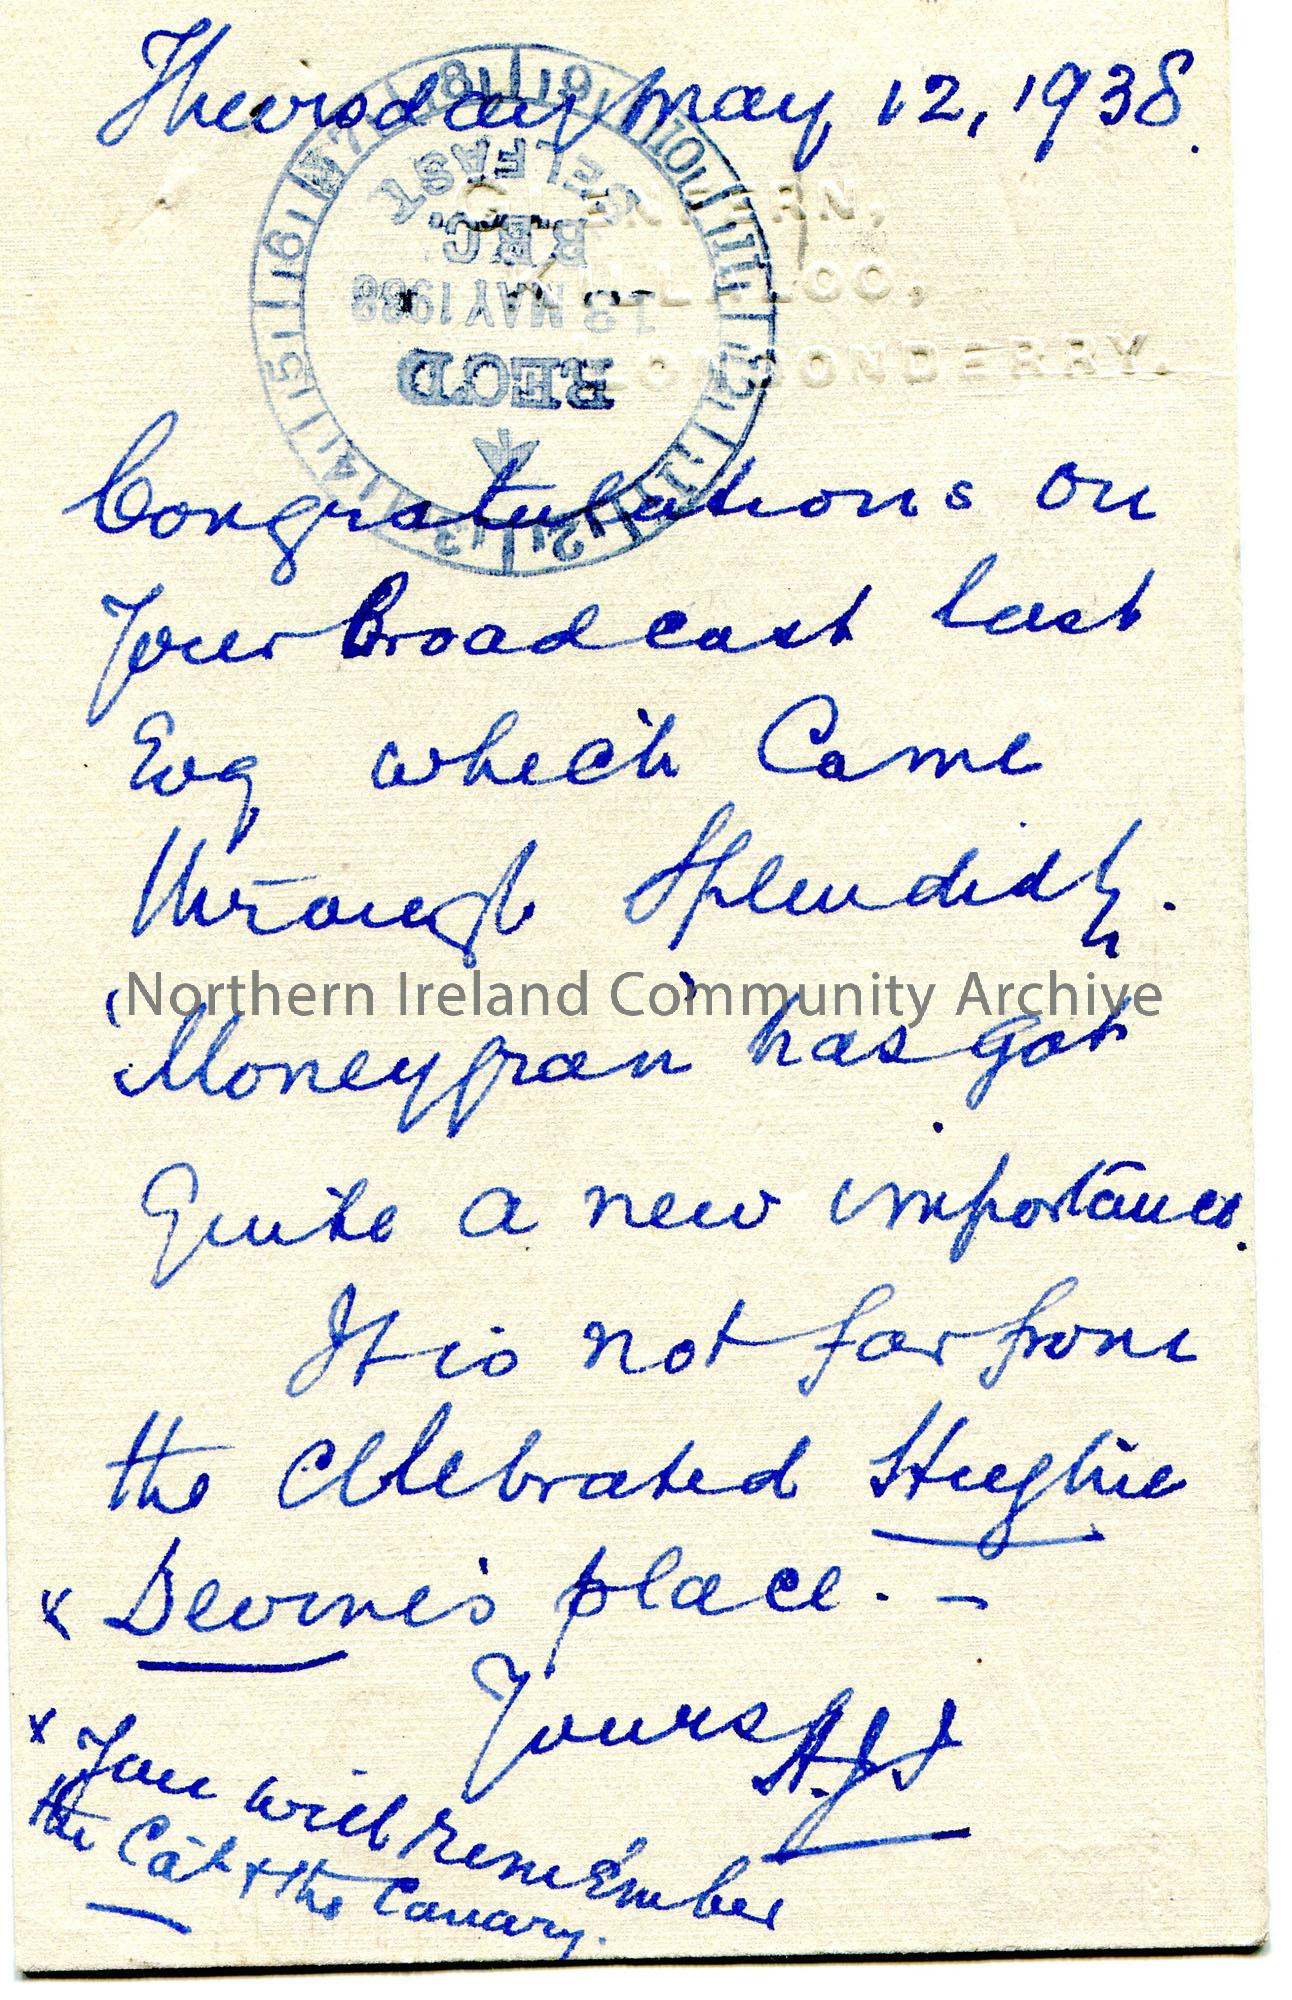 Thursday May 12, 1938.
GLENFERN,
KILLALOO,
LONDONDERRY.
BELFAST
B.B.C.
13 MAY 1938
REC'D
Congratulations on
Your Broadcast last
Evg which Came
through Splendidly.
Northern Ireland Community Archive
'Moneygran' has got
Quite a new importance.
It is not far from
the Celebrated Hughie
x Devine's place. –
Yours
H.J.S
x You will remember
the Cat & the Canary.